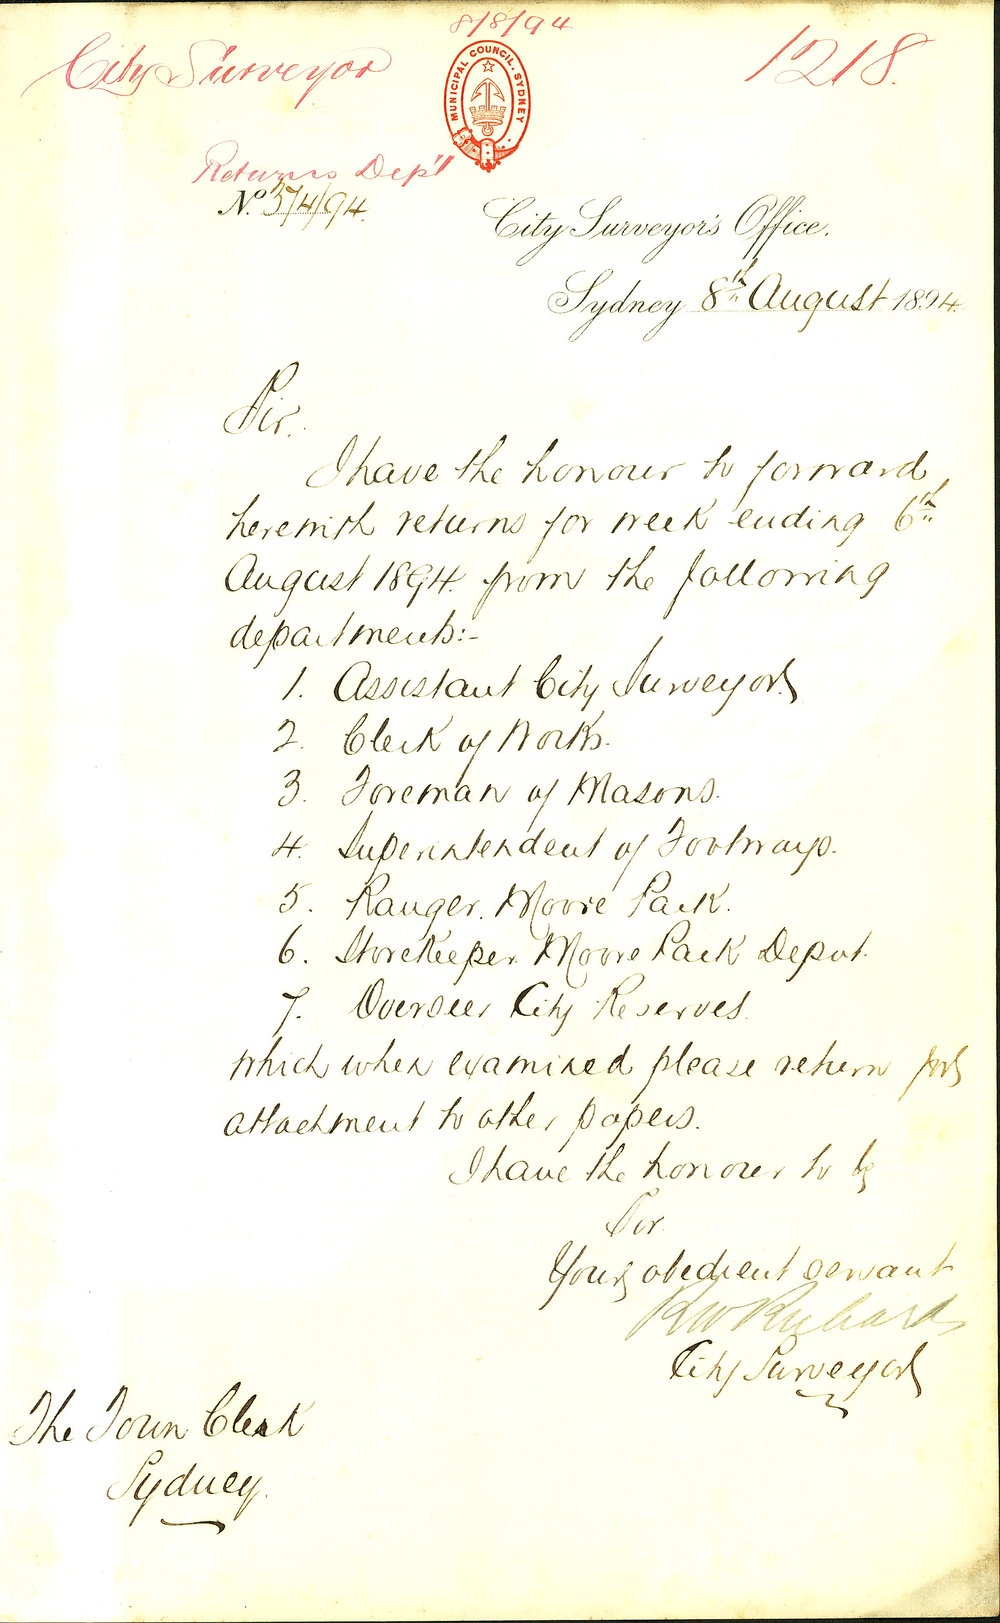 8/8/94
City Surveyor
1218.
MUNICIPAL COUNCIL. SYDNEY
Returns Dep't
No. 374/94.
City Surveyor's Office.
Sydney 8th August 1894.
Sir.
I have the honour to forward
herewith returns for week ending 6th
August 1894. from the following
departments:-
1. Assistant City Surveyor
2. Clerk of Works.
3. Foreman of Masons.
4. Superintendent of Footways.
5. Ranger. Moore Park.
6. Storekeeper. Moore Park Depot.
7. Overseer City Reserves.
which when examined please return for
attachment to other papers.
I have the honour to be
Sir.
Your obedient servant
R W Richards
City Surveyor
The Town Clerk
Sydney.